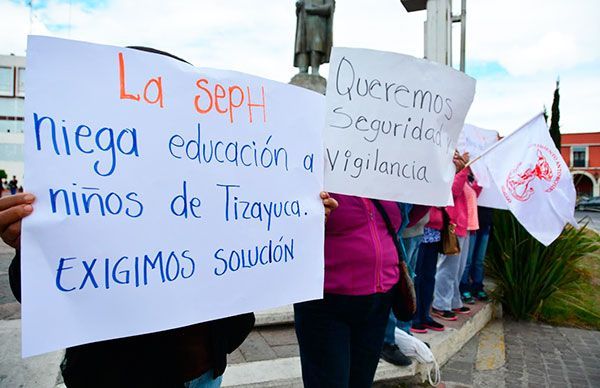 La sepH
niega educación a
niños de Tizayuca.
EXIGIMOS solución
Queremos
Seguridad y
Vigilancia